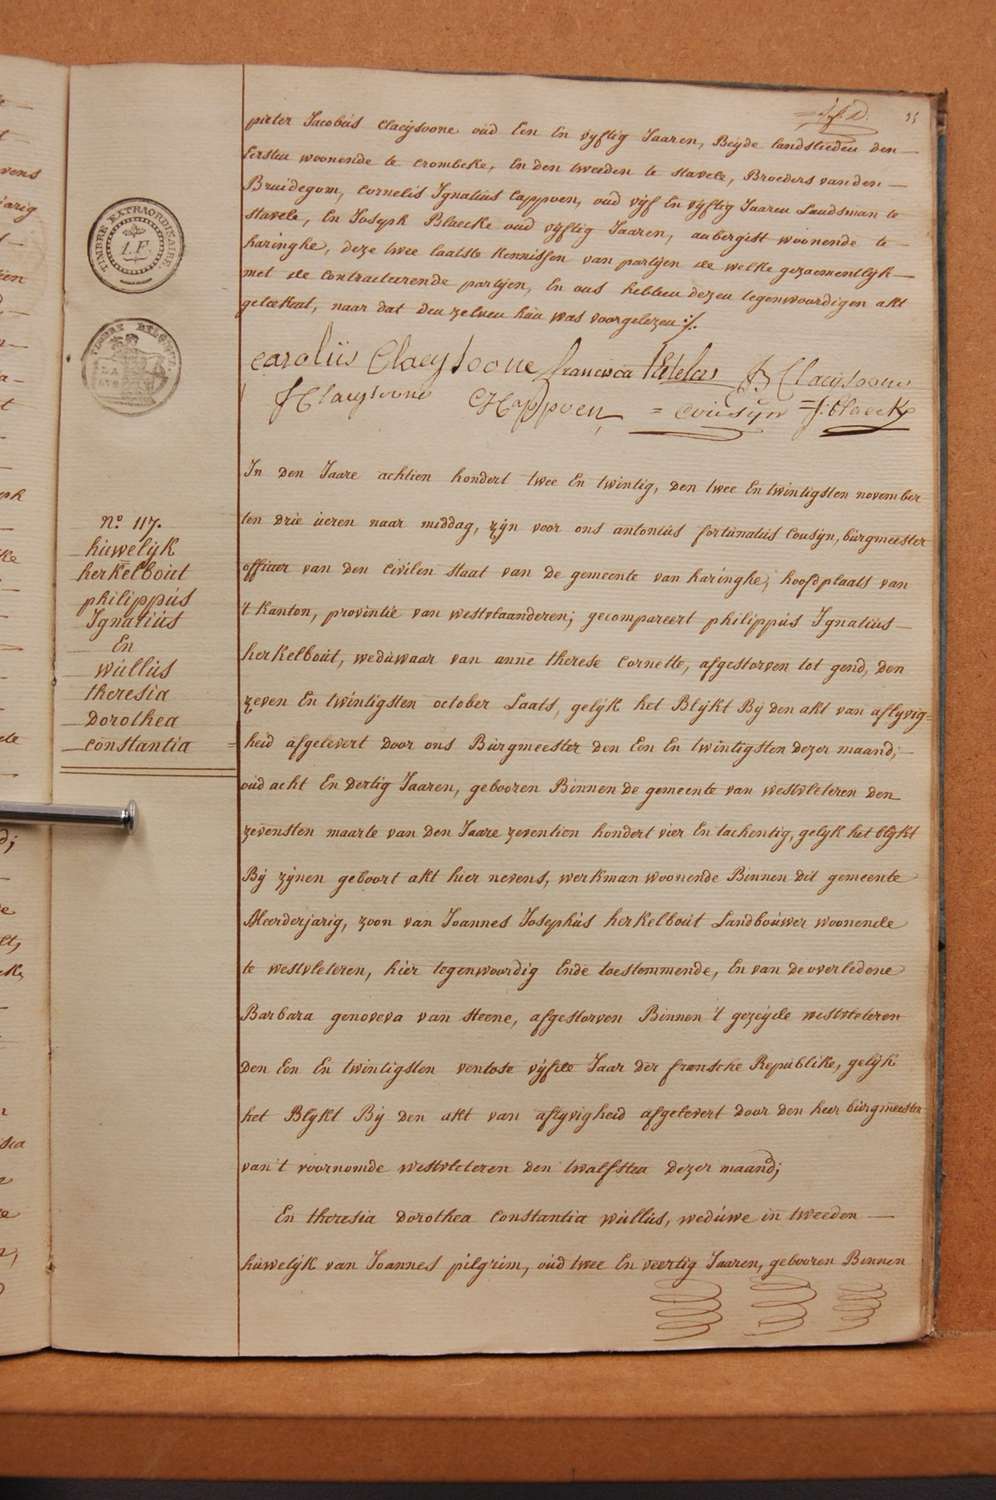 35
pieter Jacobus Claeijsoone oud Een En vyftig Jaaren, Beyde landslieden den
Eersten woonende te Crombeke, En den tweeden te stavele, Broeders van den
Bruidegom, Cornelis Ignatius Cappoen, oud vijf En vyftig Jaaren Landsman te
stavele, En Joseph Blaecke oud vyftig Jaaren, aubergist woonende te
haringhe, deze twee laatste kennissen van partyen de welke gezaementlyk
met de Contracteerende partyen, En ons hebben dezen tegenwoordigen akt
geteekent, naar dat den zelven hun was voorgelezen ./.
Carolus Claeysoone francisca B Claeysoone
J Claeysoone CJ Cappoen = Cousyn = J. Blaecke
TIMBRE EXTRAORDINAIRE
1. F.
N.º 117.
huwelyk
herkelbout
philippus
Ignatius
En
wullus
theresia
Dorothea
constantia
In den Jaare achtien hondert twee En twintig, den twee En twintigsten november
ten drie ueren naar middag, zyn voor ons antonius fortunatus Cousyn, burgmeester
officier van den Civilen staat van de gemeente van haringhe, hoofdplaats van
't kanton, provintie van westvlaanderen; gecompareert philippus Ignatius
herkelbout, weduwaar van anne therese Cornette, afgestorven tot gend, den
zeven En twintigsten october Laats, gelyk het Blykt By den akt van aflyvig=
heid afgelevert Door ons Burgmeester den Een En twintigsten dezer maand;
oud acht En Dertig Jaaren, gebooren Binnen De gemeente van westvleteren Den
zevensten maarte van den Jaare zeventien hondert vier En tachentig, gelyk het blykt
By zynen geboort akt hier nevens, werkman woonende Binnen dit gemeente
Meerderjarig, zoon van Joannes Josephus herkelbout Landbouwer woonende
te westvleteren, hier tegenwoordig Ende toestemmende, En van de overledene
Barbara genoveva van steene, afgestorven Binnen 't gezeyde westvleteren
Den Een En twintigsten ventose vyfde Jaar der fransche Republike, gelyk
het Blykt By den akt van aflyvigheid afgelevert Door den heer burgmeester
van 't voornomde westvleteren den twalfsten dezer maand;
En theresia Dorothea Constantia wullus, weduwe in tweeden
huwelyk van Joannes pilgrim, oud twee En veertig Jaaren, gebooren Binnen